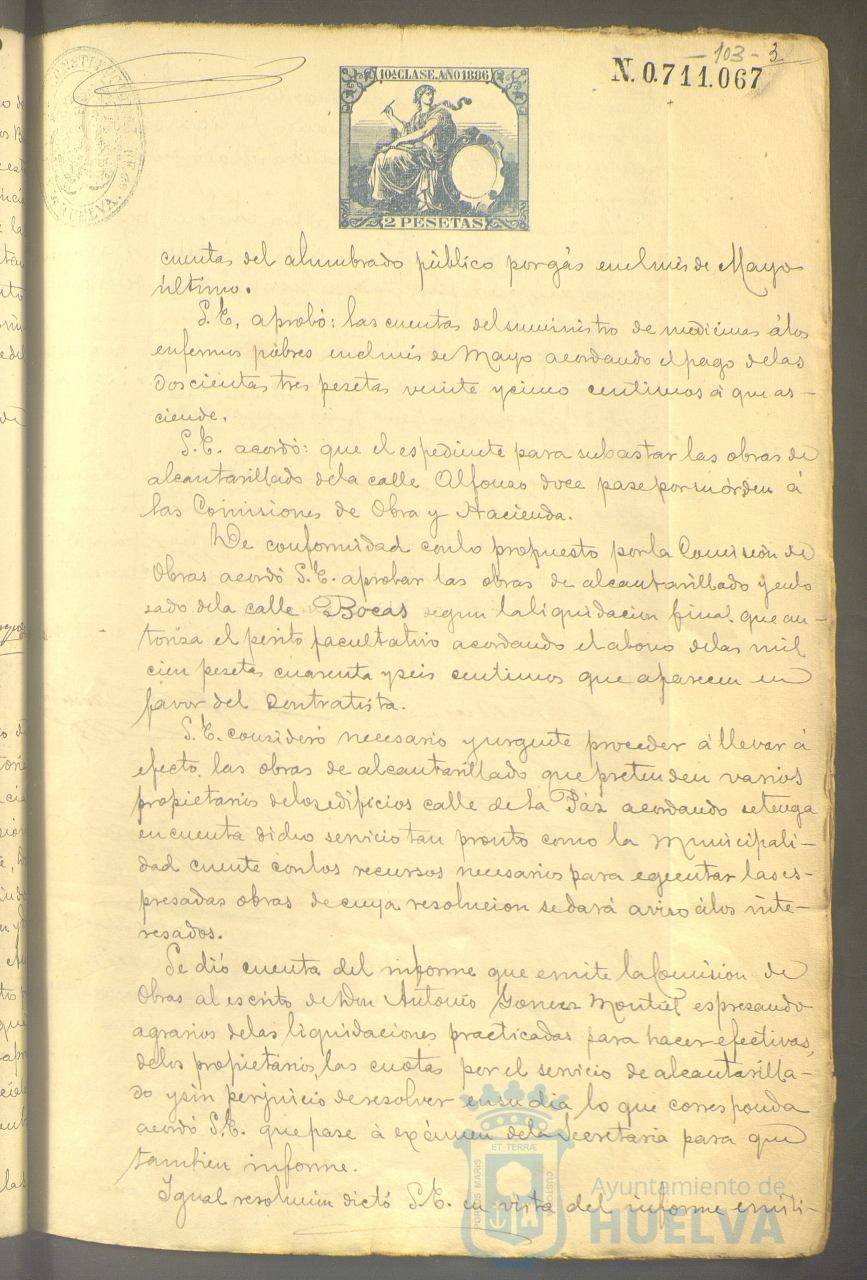 - 103 - 3
10ª CLASE. AÑO 1886
N. 0.711.067
2 PESETAS
HUELVA.
cuentas del alumbrado público por gás en el mes de Mayo
último.
S. E. aprobó: las cuentas del suministro de medicinas á los
enfermos pobres en el mes de Mayo acordando el pago de las
doscientas tres pesetas veinte y cinco centimos á que as-
ciende.
S. E. acordó: que el espediente para subastar las obras de
alcantarillado de la calle Alfonso doce pase por su órden á
las Comisiones de Obra y Hacienda.
De conformidad con lo propuesto por la Comisión de
Obras acordó S. E. aprobar las obras de alcantarillado y enlo
sado de la calle Bocas segun la liquidacion final que au-
toriza el perito facultativo acordando el abono de las mil
cien pesetas cuarenta y seis centimos que aparecen en
favor del Contratista.
S. E. consideró necesario y urgente proceder á llevar á
efecto las obras de alcantarillado que pretenden varios
propietarios de los edificios calle de la Páz acordando se tenga
en cuenta dicho servicio tan pronto como la Municipali-
dad cuente con los recursos necesarios para egecutar las es-
presadas obras de cuya resolucion se dará aviso á los inte-
resados.
Se dió cuenta del informe que emite la Comision de
Obras al escrito de Don Antonio Gomez Montiel espresando
agravios de las liquidaciones practicadas para hacer efectivas
de los propietarios, las cuotas por el servicio de alcantarilla-
do y sin perjuicio de resolver en su dia lo que corresponda
acordó S. E. que pase á exámen de la Secretaria para que
tambien informe.
Igual resolucion dictó S. E. en vista del informe emiti-
PORTUS MARIS
ET TERRÆ
CUSTODIA
Ayuntamiento de
HUELVA